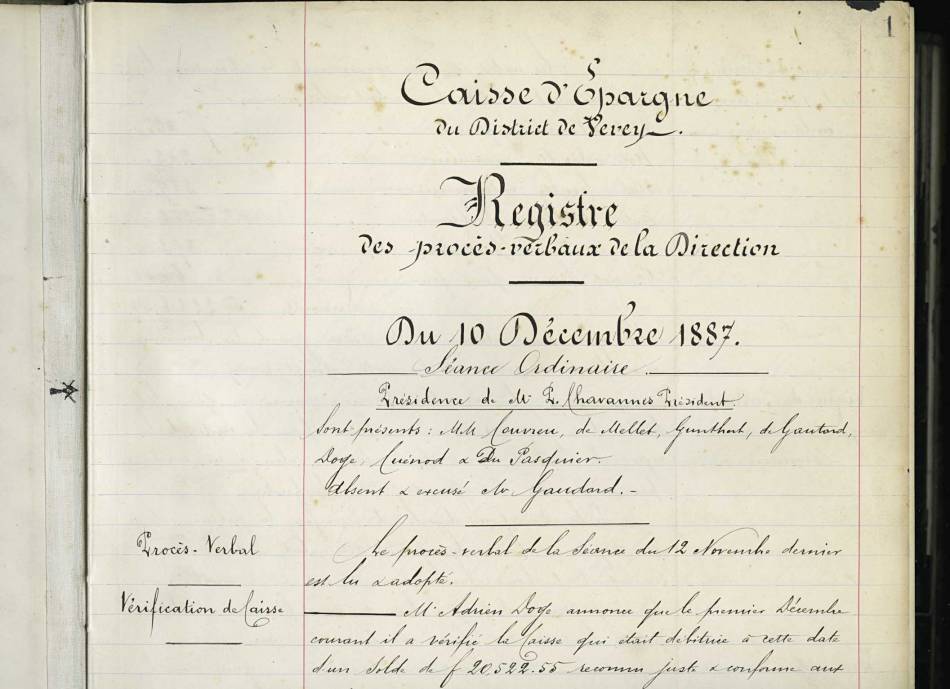 1
Caisse d'Epargne
du District de Vevey.
Registre
des procès-verbaux de la Direction
Du 10 Décembre 1887.
Séance Ordinaire.
Présidence de Mr P. Chavannes Président
Sont présents : MM Couvreu, de Mellet, Gunthert, de Gautard,
Doge, Cuénod & Du Pasquier.
Absent & excusé Mr Gaudard. -
Procès-Verbal
Le procès-verbal de la Séance du 12 Novembre dernier
est lu & adopté.
Vérification de Caisse
Mr Adrien Doge annonce que le premier Décembre
courant il a vérifié la Caisse qui était débitrice à cette date
d'un Solde de f 20,522.55 reconnu juste & conforme aux